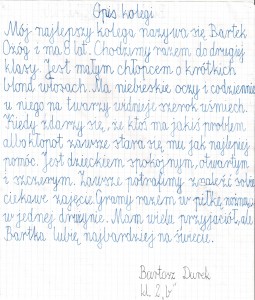 Opis kolegi
Mój najlepszy kolega nazywa się Bartek
Ozóg i ma 8 lat. Chodzimy razem do drugiej
klasy. Jest małym chłopcem o krótkich
blond włosach. Ma niebieskie oczy i codziennie
u niego na twarzy widnieje szeroki uśmiech.
Kiedy zdarzy się, że ktoś ma jakiś problem
albo kłopot zawsze stara się mu jak najlepiej
pomóc. Jest dzieckiem spokojnym, otwartym
i szczerym. Zawsze potrafimy znaleźć sobie
ciekawe zajęcie. Gramy razem w piłkę nożną
w jednej drużynie. Mam wielu przyjaciół, ale
Bartka lubię najbardziej na świecie.
Bartosz Durek
kl. 2 „b"